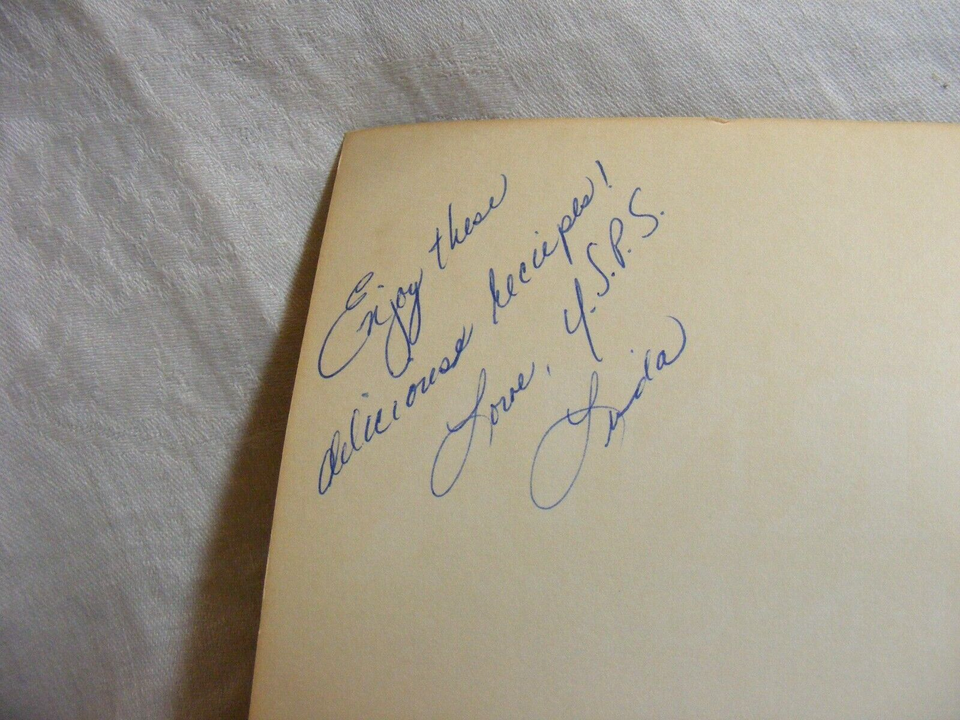 Enjoy these
deliciouse reciepes!
Love, Y.S.P.S.
Linda